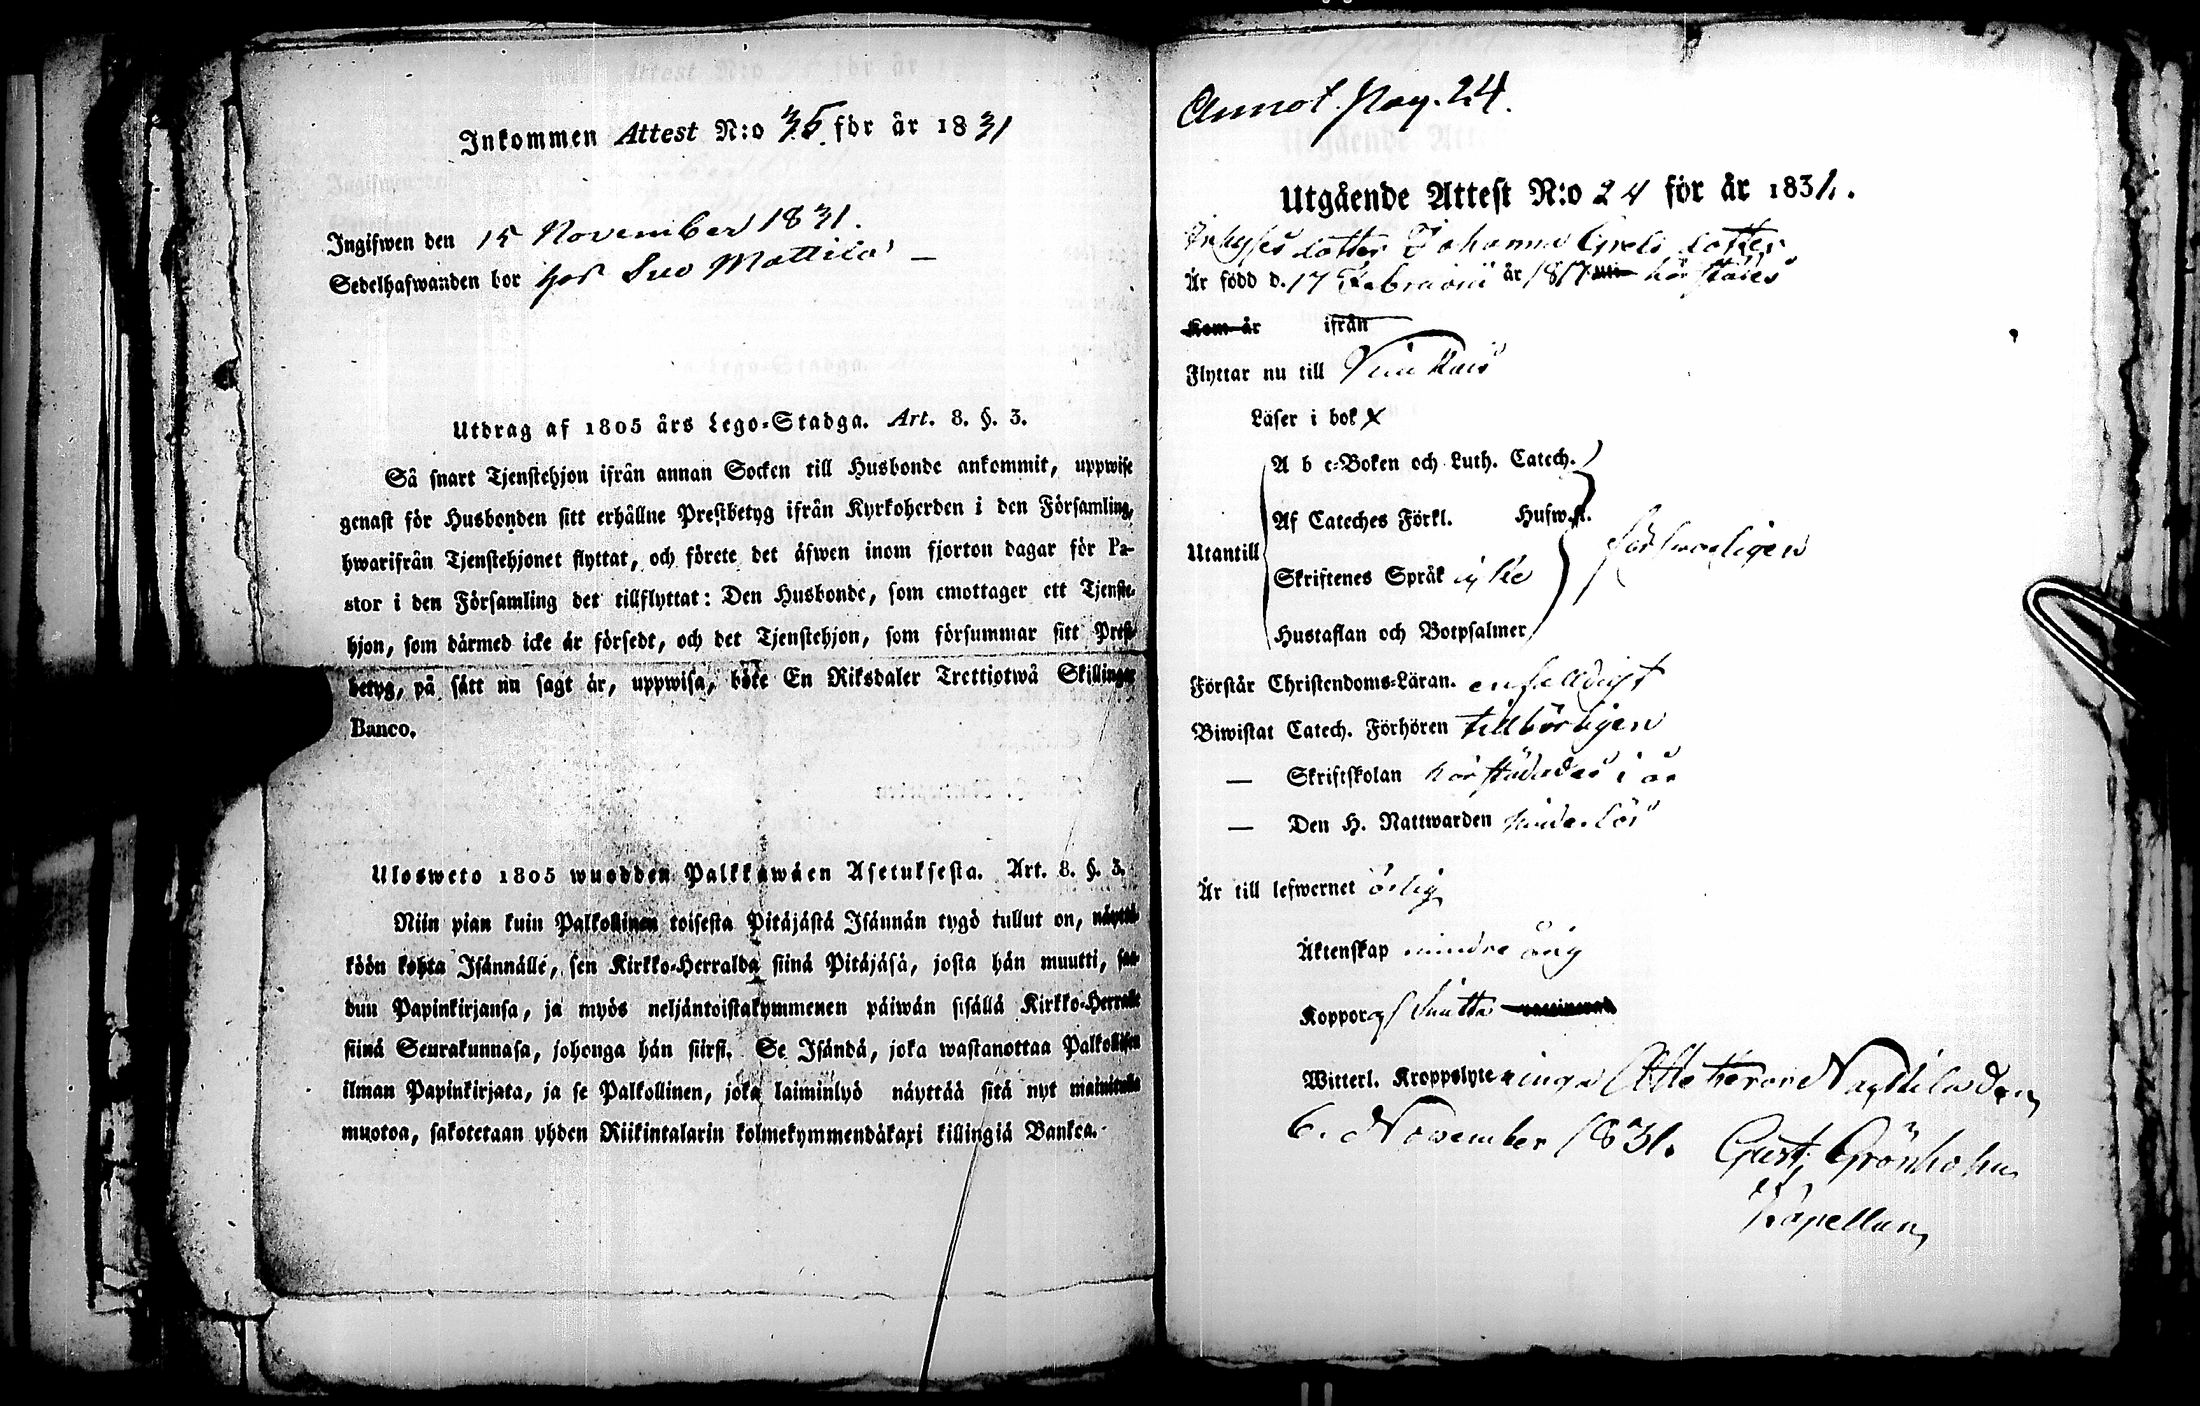 Inkommen Attest N:o 35. för år 1831
Ingifwen den 15 November 1831.
Sedelhafwanden bor hos Mattila
Utdrag af 1805 års Lego-Stadga. Art. 8. §. 3.
Så snart Tjenstehjon ifrån annan Socken till Husbonde ankommit, uppwise
genast för Husbonden sitt erhållne Prestbetyg ifrån Kyrkoherden i den Församling,
hwarifrån Tjenstehjonet flyttat, och förete det äfwen inom fjorton dagar för Pa-
stor i den Församling det tillflyttat: Den Husbonde, som emottager ett Tjenste-
hjon, som därmed icke är försedt, och det Tjenstehjon, som försummar sitt Prest-
betyg, på sätt nu sagt är, uppwisa, böte En Riksdaler Trettiotwå Skillingar
Banco.
Ulosweto 1805 wuodden Palkkawäen Asetuksesta. Art. 8. §. 3.
Niin pian kuin Palkollinen toisesta Pitäjästä Isännän tygö tullut on, näyttä-
köön kohta Isännälle, sen Kirkko-Herralda siinä Pitäjäsä, josta hän muutti, saa-
dun Papinkirjansa, ja myös neljäntoistakymmenen päiwän sisällä Kirkko-Herralle
siinä Seurakunnasa, johonga hän siirsi. Se Isändä, joka wastanottaa Palkollisen
ilman Papinkirjata, ja se Palkollinen, joka laiminlyö näyttää sitä nyt mainitulla
muotoa, sakotetaan yhden Riikintalarin kolmekymmendäkaxi killingiä Bankca.
Annot. pag. 24.
Utgående Attest N:o 24 för år 1831.
dotter Johanna Grels dotter
Är född d. 17 Februarii år 1817 härstädes
Kom år ifrån
Flyttar nu till
Läser i bok x
Utantill
A b c-Boken och Luth. Catech.
Af Cateches Förkl. Husw.fl.
Skriftenes Språk icke
Hustaflan och Botpsalmer
försvarligen
Förstår Christendoms-Läran. enfaldigt
Biwistat Catech. Förhören tillbörligen
— Skriftskolan härstädes i år
— Den H. Nattwarden hinderlös
Är till lefwernet ärlig
Äktenskap mindre årig
Koppor ej haft
Witterl. Kroppslyte inga Attesterar Nagdila den
6. November 1831. Gust. Grönholm
Kapellan